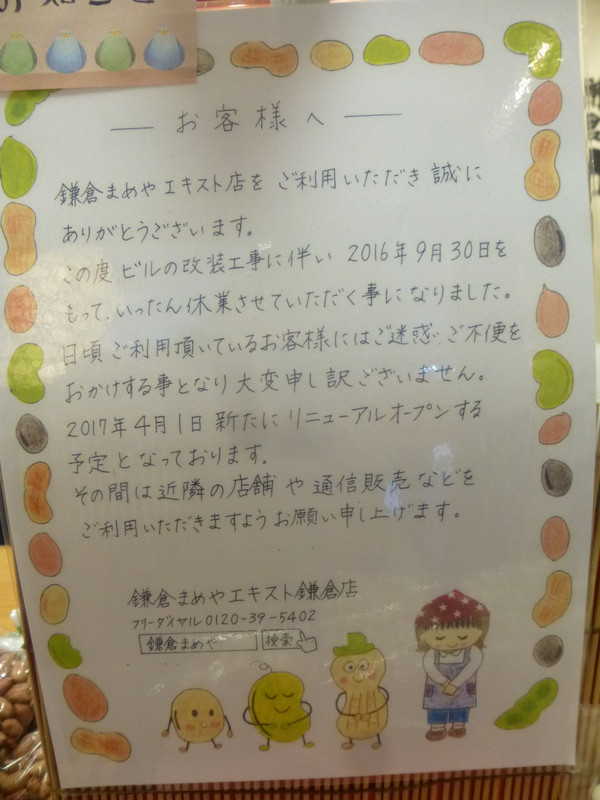 お知らせ
― お客様へ ―
鎌倉まめやエキスト店を ご利用いただき 誠に
ありがとうございます。
この度 ビルの改装工事に伴い 2016年9月30日を
もって、いったん休業させていただく事になりました。
日頃 ご利用頂いているお客様にはご迷惑、ご不便を
おかけする事となり 大変申し訳ございません。
2017年4月1日 新たに リニューアルオープンする
予定となっております。
その間は近隣の店舗や通信販売などを
ご利用いただきますようお願い申し上げます。
鎌倉まめやエキスト鎌倉店
フリーダイヤル 0120-39-5402
鎌倉まめや 検索